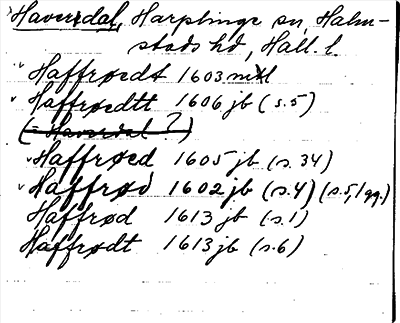 Haverdal, Harplinge sn, Halm-
stads hd, Hall. l.
Haffrøedt 1603 mtl
Haffrøedtt 1606 jb (s. 5)
(= Haverdal?)
Haffrøed 1605 jb (s. 34)
Haffrød 1602 jb (s. 4) (s. 5, 1 gg.)
Haffrød 1613 jb (s. 1)
Haffrødt 1613 jb (s. 6)